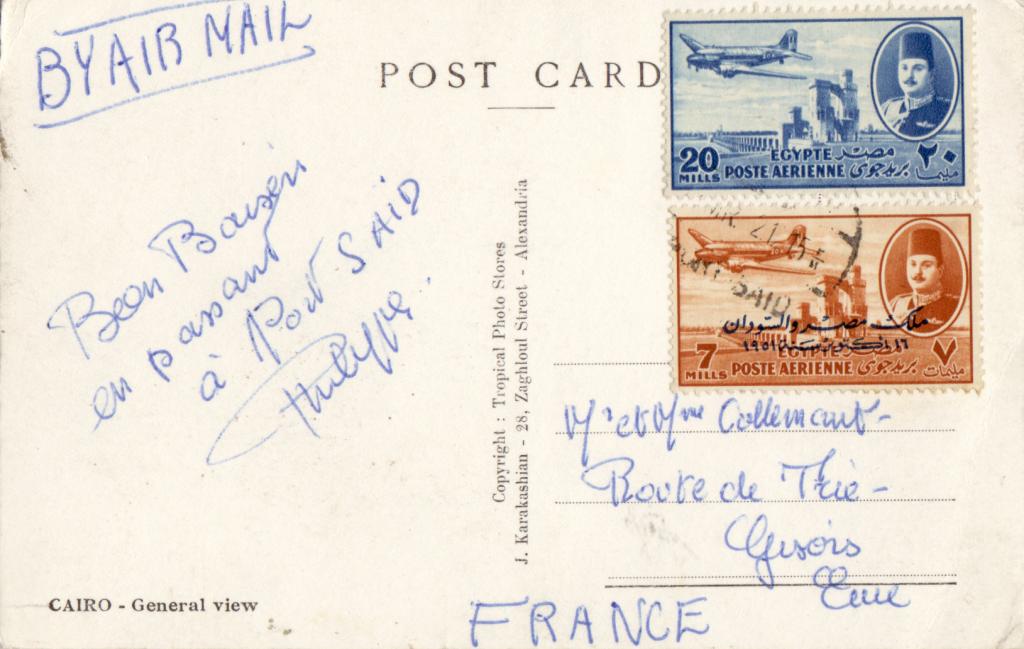 BY AIR MAIL
POST CARD
Bon Baiser
en passant
à Port SAID
Philippe.
CAIRO - General view
Copyright : Tropical Photo Stores
J. Karakashian - 28, Zaghloul Street - Alexandria
EGYPTE مصر
٢٠ مليما
20 MILLS POSTE AERIENNE بريد جوى
21
SAID
ملك مصر والسودان
١٦ اكتوبر سنة ١٩٥١
EGYPTE
7 MILLS POSTE AERIENNE بريد جوى
٧ مليمات
Mr et Mme Collemant-
Route de Trie-
Gisors
Eure
FRANCE